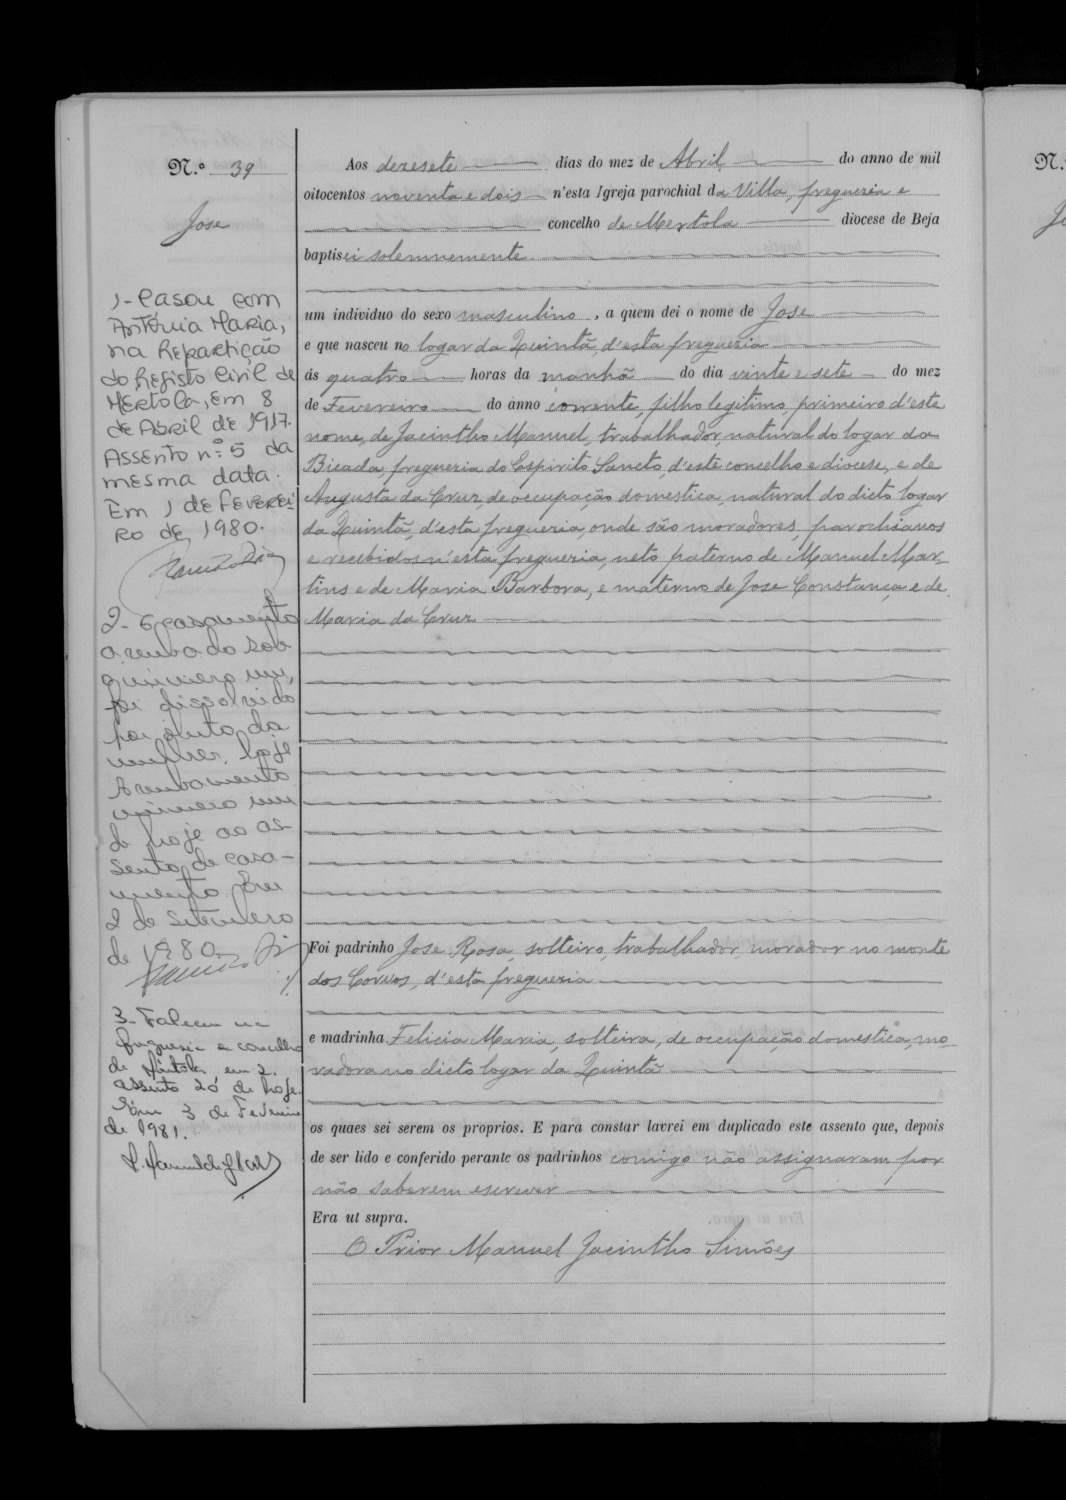 N.º 39
Jose
1- Casou com
Antónia Maria,
na Repartição
do Registo Civil de
Mertola, em 8
de Abril de 1917.
Assento nº 5 da
mesma data.
Em 1 de Feverei-
ro de 1980.
2- O casamento
averbado sob
o numero um,
foi dissolvido
por óbito da
mulher, hoje
Averbamento
número um
de hoje ao as-
sento de casa-
mento. Em
2 de Setembro
de 1980.
3- Faleceu na
freguesia e concelho
de Mértola em 2.
assento 20 de hoje.
Em 3 de Fevereiro
de 1981.
Aos dezesete dias do mez de Abril do anno de mil
oitocentos noventa e dois n'esta Igreja parochial da Villa, freguezia e
concelho de Mertola diocese de Beja
baptisei solemnemente
um individuo do sexo masculino, a quem dei o nome de Jose
e que nasceu no logar da Quintã, d'esta freguezia
ás quatro horas da manhã do dia vinte e sete do mez
de Fevereiro do anno corrente, filho legitimo, primeiro d'este
nome, de Jacintho Manuel, trabalhador, natural do logar da
Bicada, freguezia do Espirito Sancto, d'este concelho e diocese, e de
Augusta da Cruz, de occupação domestica, natural do dicto logar
da Quintã, d'esta freguezia, onde são moradores, parochianos
e recebidos n'esta freguezia, neto paterno de Manuel Mar-
tins e de Maria Barbora, e materno de Jose Constança e de
Maria da Cruz
Foi padrinho Jose Rosa, solteiro, trabalhador, morador no monte
dos Corvos, d'esta freguezia
e madrinha Felicia Maria, solteira, de occupação domestica, mo-
radora no dicto logar da Quintã
os quaes sei serem os proprios. E para constar lavrei em duplicado este assento que, depois
de ser lido e conferido perante os padrinhos comigo não assignaram por
não saberem escrever
Era ut supra.
O Prior Manuel Jacintho Simões
N.